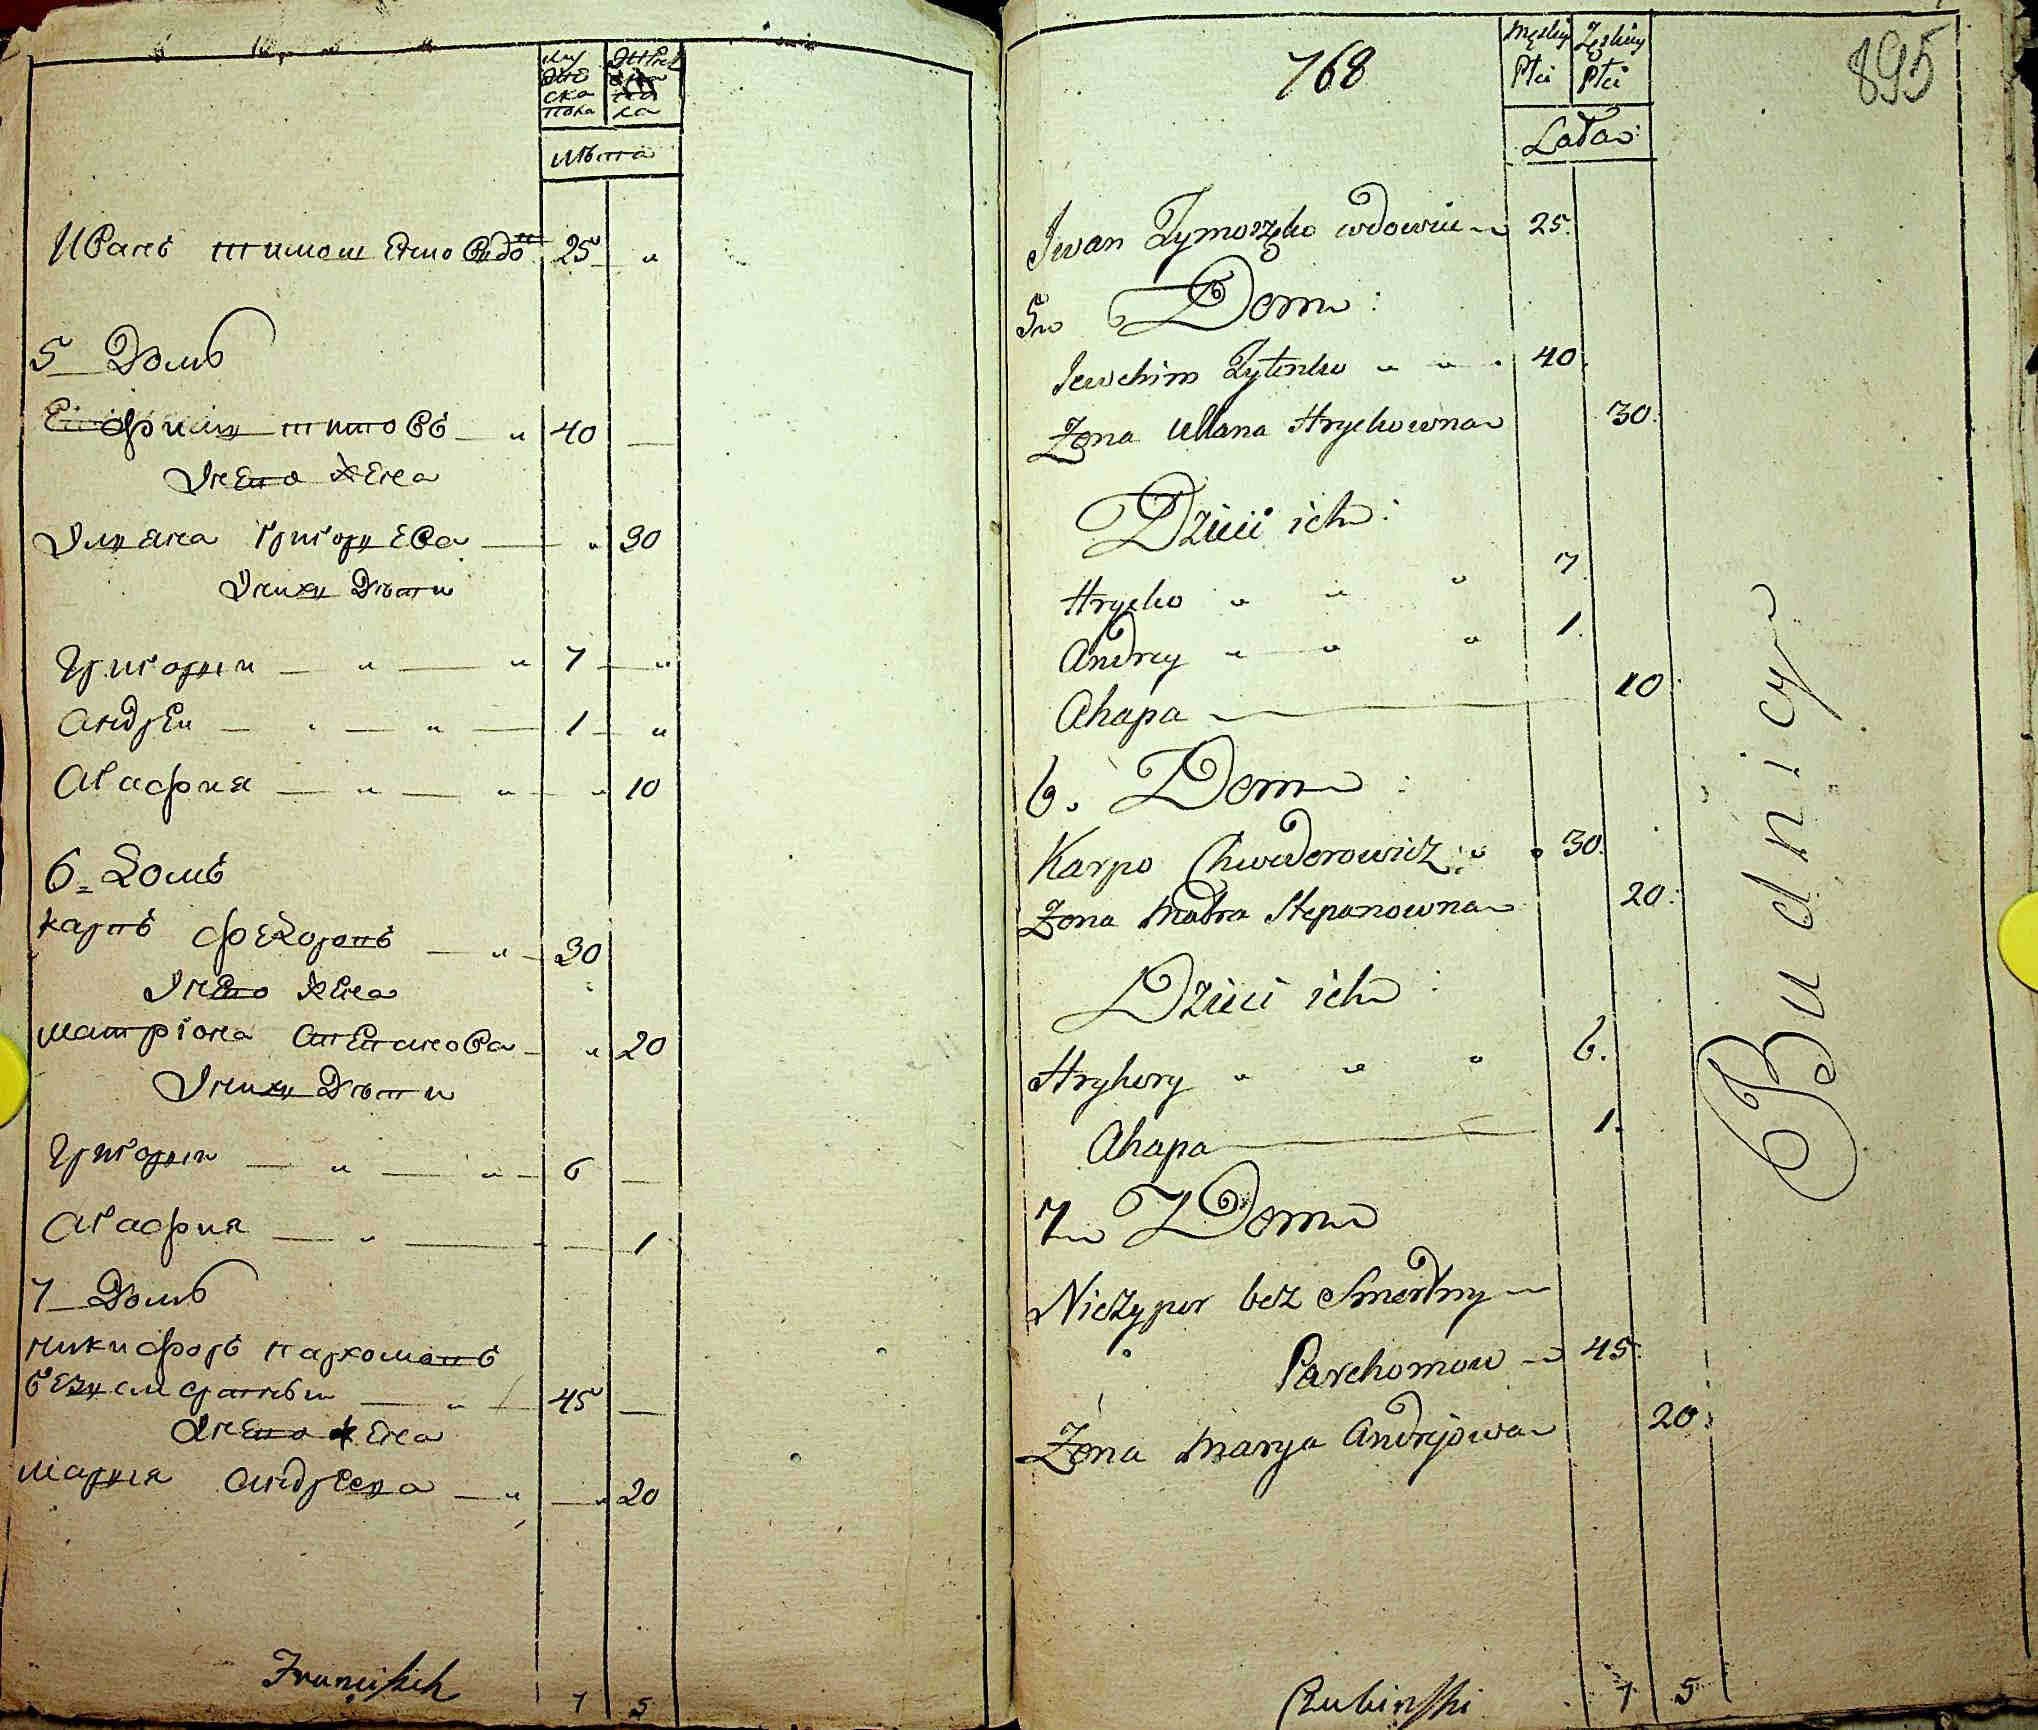 мужеска пола
женска пола
лѣта
Иванъ тимошенко вдов 25
5 Домъ
Ефимъ титовъ 40
У него жена
Уляна григорьева 30
У них дѣти
Григории 7
Андрей 1
Агафия 10
6 Домъ
карпъ федоровъ 30
У него жена
матріона степанова 20
У них дѣти
Григории 6
Агафия 1
7 Домъ
никифоръ пархомовъ
безсмертныи 45
У него жена
мария андреева 20
Franciszek
7 5
768
895
Męskiy Płci
Żęskiey Płci
Lata:
Iwan Tymoszko wdowiec 25.
5. Dom:
Jewchim Tytenko 40.
Żona Ullana Hryckowna 30.
Dzieci ich:
Hrycko 7.
Andrey 1.
Ahapa 10
6. Dom:
Karpo Chwedorowicz 30.
Żona Matra Stepanowna 20:
Dzieci ich:
Hryhory 6.
Ahapa 1.
7 Dom
Niczypor bez Smertny
Parchomow 45.
Żona Marya Andrejowa 20:
Budnicy
Rubinski
7 5